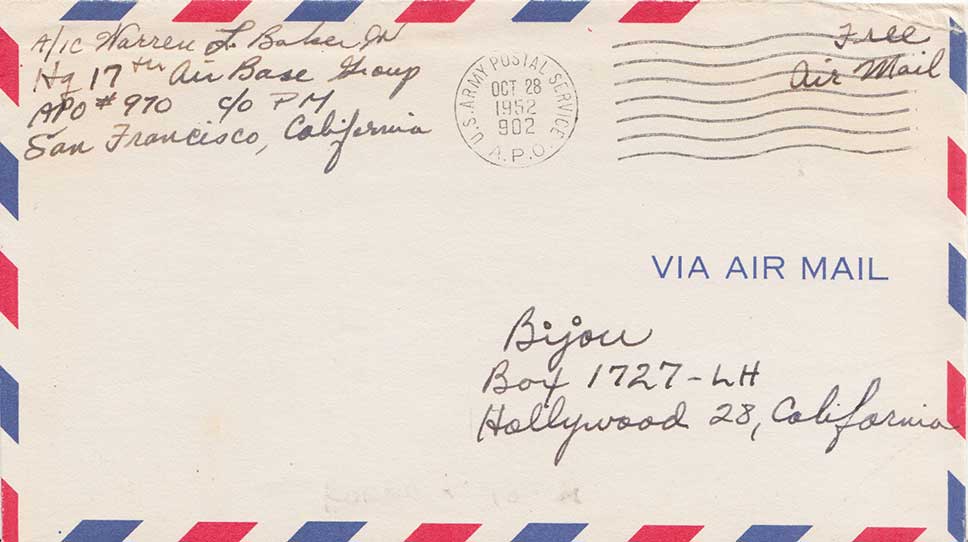 A/1C Warren L. Baker Jr
Hq 17th Air Base Group
APO # 970 c/o PM
San Francisco, California
U.S. ARMY POSTAL SERVICE
OCT 28
1952
902
A.P.O.
Free
Air Mail
VIA AIR MAIL
Bijou
Box 1727-LH
Hollywood 28, California